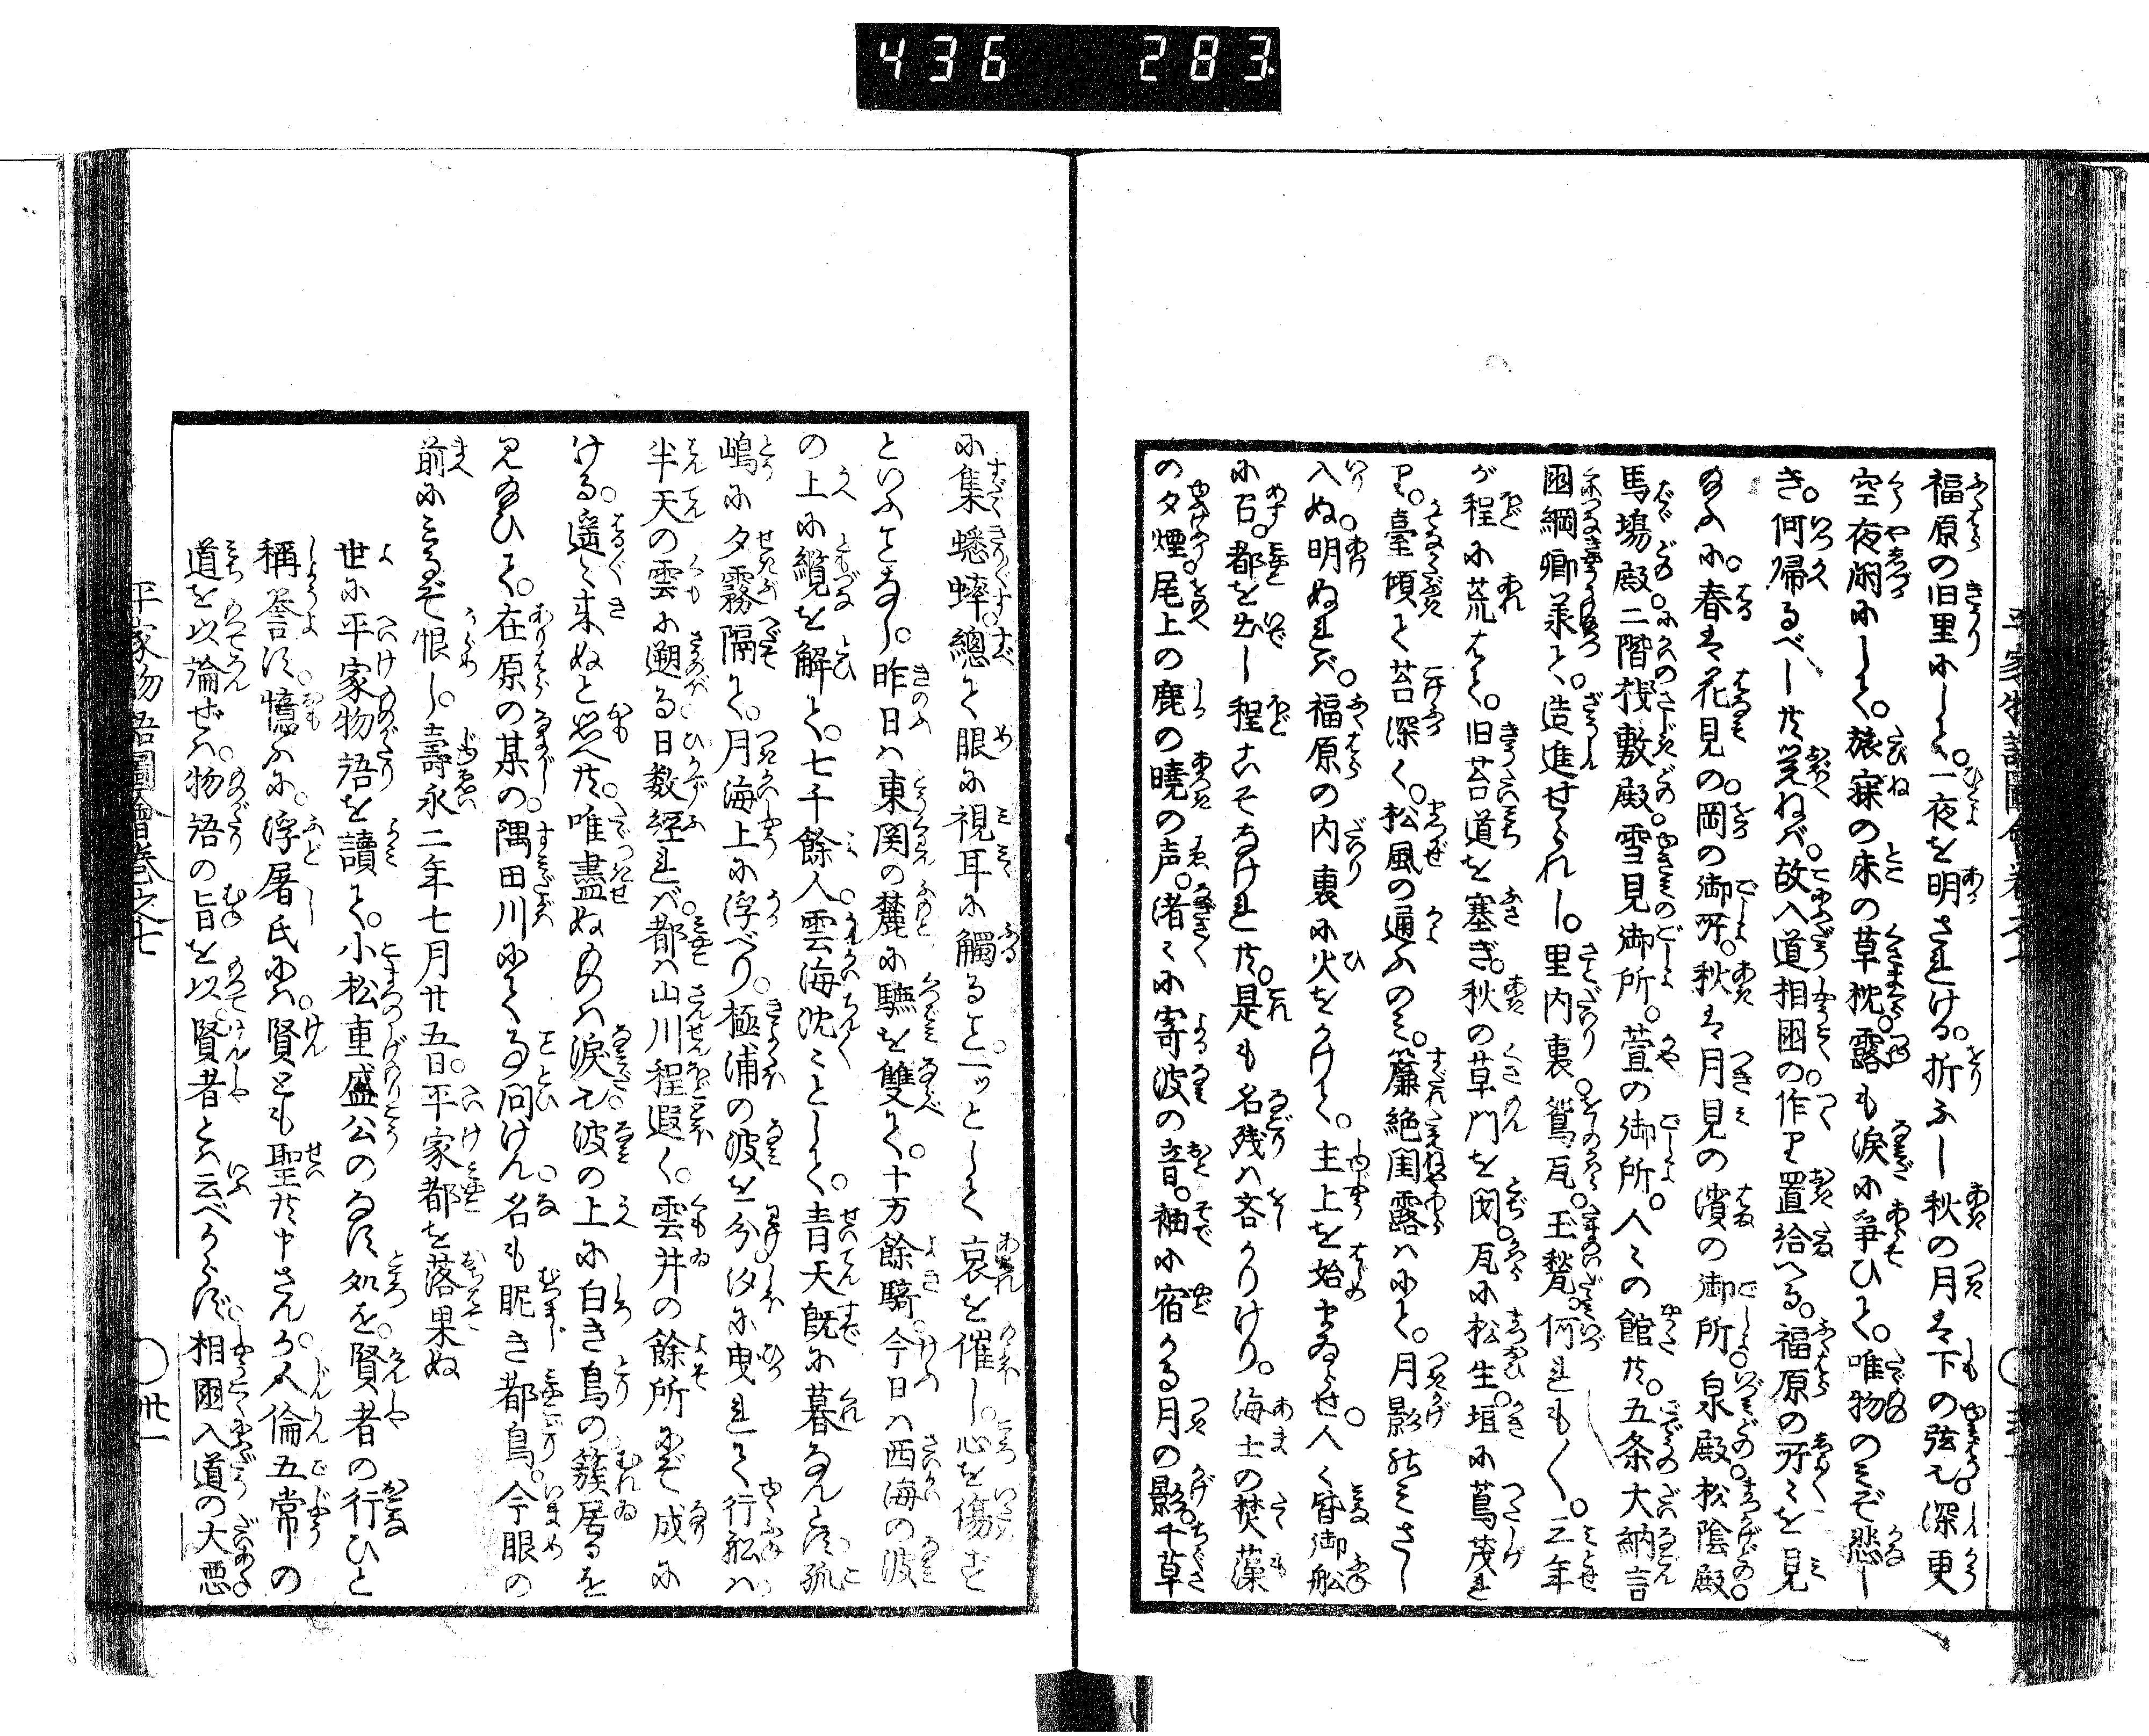 436 283
福原の旧里にして。一夜を明されける。折ふし秋の月は下の弦也。深更
空夜閑にして。旅寐の床の草枕。露も涙に争ひて。唯物のみぞ悲し
き。何帰るべし共覚ねば。故入道相国の作り置給へる。福原の所々を見
給ふに。春は花見の岡の御所。秋は月見の濱の御所。泉殿松陰殿。
馬塲殿二階桟敷殿。雪見御所。萱の御所。人々の館共。五条大納言
国綱卿承て。造進せられし。里内裏。鴛瓦。玉甃。何れも〳〵。三年
が程に荒はて。旧苔道を塞ぎ。秋の草門を閉。瓦に松生。垣に蔦茂れ
り。臺傾て苔深く。松風の通ふのミ。簾絶閨露ハにて。月影のミさし
入ぬ。明ぬれバ。福原の内裏に火をかけて。主上を始まゐらせ。人々皆御舩
に召。都を出し程こそなけれ共。是も名残ハ吝かりけり。海士の焚藻
の夕煙。尾上の鹿の暁の声。渚々に寄波の音。袖に宿かる月の影。千草
に集蟋蟀。總て眼に視耳に觸ること。一ッとして哀を催し。心を傷ずと
といふことなし。昨日ハ東関の麓に轡を雙て。十万餘騎。今日ハ西海の波
の上に纜を解て。七千餘人。雲海沈々として。青天既に暮なんとす。孤
嶋に夕霧隔て。月海上に浮べり。極浦の波を分。汐に曳れて行舩ハ
半天の雲に遡る。日数経れバ。都ハ山川程遐く。雲井の餘所にぞ成に
ける。遥々来ぬと思へ共。唯盡ぬものハ涙也。波の上に白き鳥の簇居るを
見給ひて。在原の某の。隅田川にてこと問けん。名も眤き都鳥。今眼の
前にミるぞ恨し。壽永二年七月廿五日。平家都を落果ぬ
世に平家物語を讀て。小松重盛公のなす処を。賢者の行ひと
稱誉す。憶ふに。浮屠氏にハ。賢とも聖共申さんか。人倫五常の
道を以論ぜバ。物語の旨を以。賢者とハ云べからず。相國入道の大悪
平家物語圖會巻之七
〇丗一